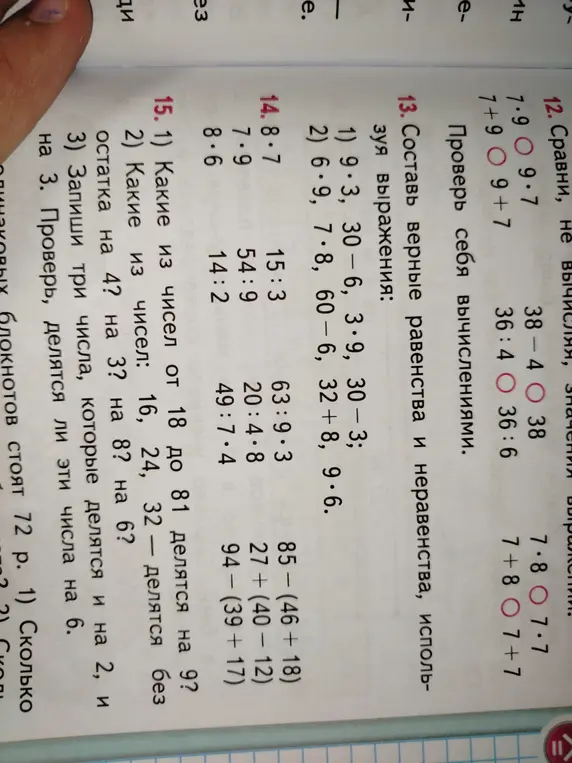 12. Сравни, не вычисляя, значения выражений.
7 · 9 ○ 9 · 7 38 − 4 ○ 38 7 · 8 ○ 7 · 7
7 + 9 ○ 9 + 7 36 : 4 ○ 36 : 6 7 + 8 ○ 7 + 7
Проверь себя вычислениями.
13. Составь верные равенства и неравенства, исполь-
зуя выражения:
1) 9 · 3, 30 − 6, 3 · 9, 30 − 3;
2) 6 · 9, 7 · 8, 60 − 6, 32 + 8, 9 · 6.
14. 8 · 7 15 : 3 63 : 9 · 3 85 − (46 + 18)
7 · 9 54 : 9 20 : 4 · 8 27 + (40 − 12)
8 · 6 14 : 2 49 : 7 · 4 94 − (39 + 17)
15. 1) Какие из чисел от 18 до 81 делятся на 9?
2) Какие из чисел: 16, 24, 32 — делятся без
остатка на 4? на 3? на 8? на 6?
3) Запиши три числа, которые делятся и на 2, и
на 3. Проверь, делятся ли эти числа на 6.
блокнотов стоят 72 р. 1) Сколько